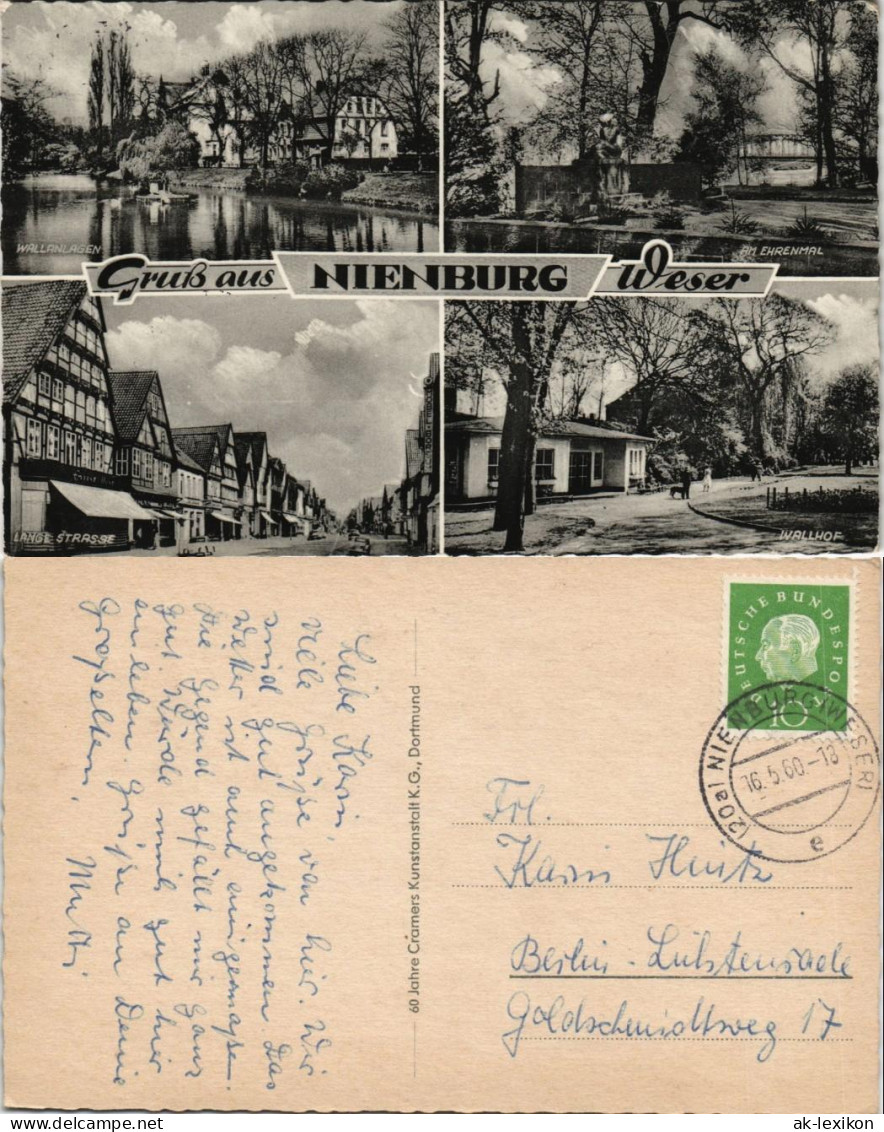 WALLANLAGEN
AM EHRENMAL
Gruß aus NIENBURG Weser
LANGE STRASSE
WALLHOF
Liebe Karin,
viele Grüße von hier. Wir
sind gut angekommen. Das
Wetter ist auch einigermaßen.
Die Gegend gefällt mir ganz
gut. Würde mich gut hier
einleben. Grüße an Deine
Großeltern.
Mutti
60 Jahre Cramers Kunstanstalt K.G., Dortmund
DEUTSCHE BUNDESPOST
10
(20a) NIENBURG (WESER)
16.5.60.-18
e
Frl.
Karin Hintz
Berlin-Lichtenrade
Goldschmidtweg 17
ak-lexikon